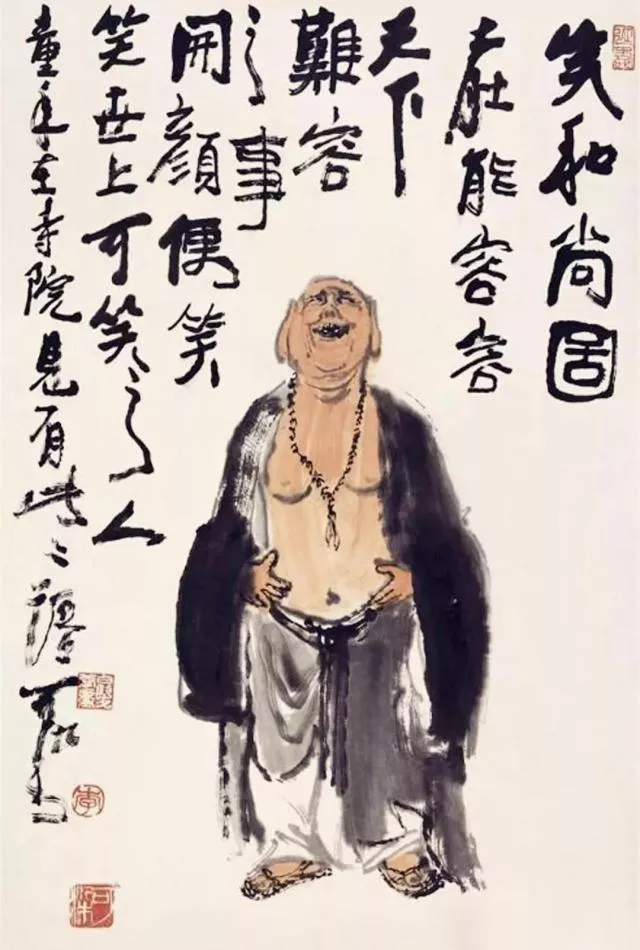 笑和尚圖
大肚能容容
天下
難容
之事
開顏便笑
笑世上可笑之人
童年在寺院見有此
可染